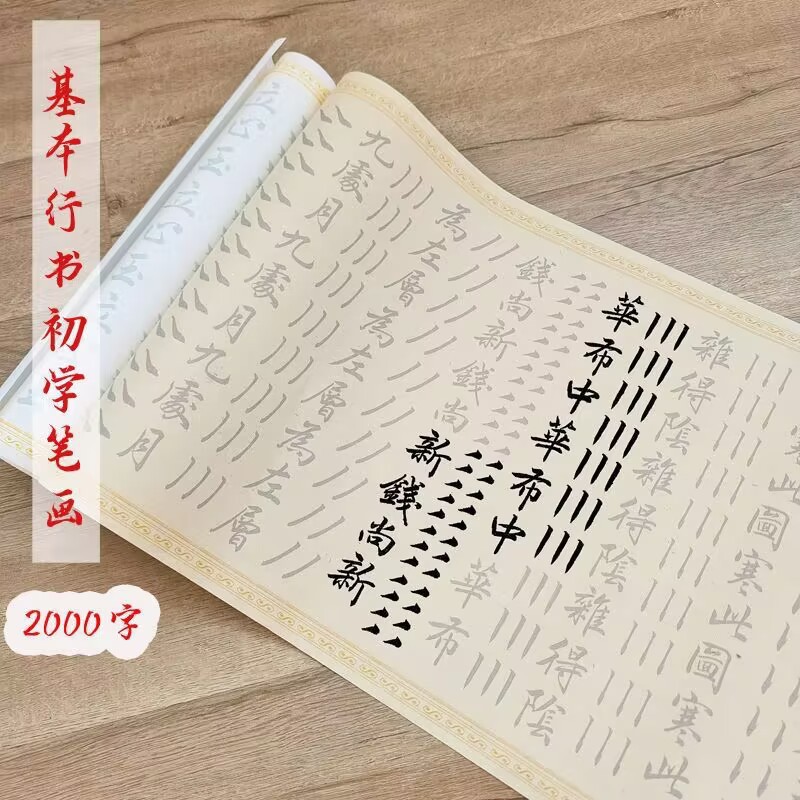 基本行书初学笔画
2000字
寒此圖寒此圖寒此
雜得陰雜得陰雜得陰
華布中華布中華布
錢尚新錢尚新錢尚新
為左層為左層為左層
九處月九處月九處月